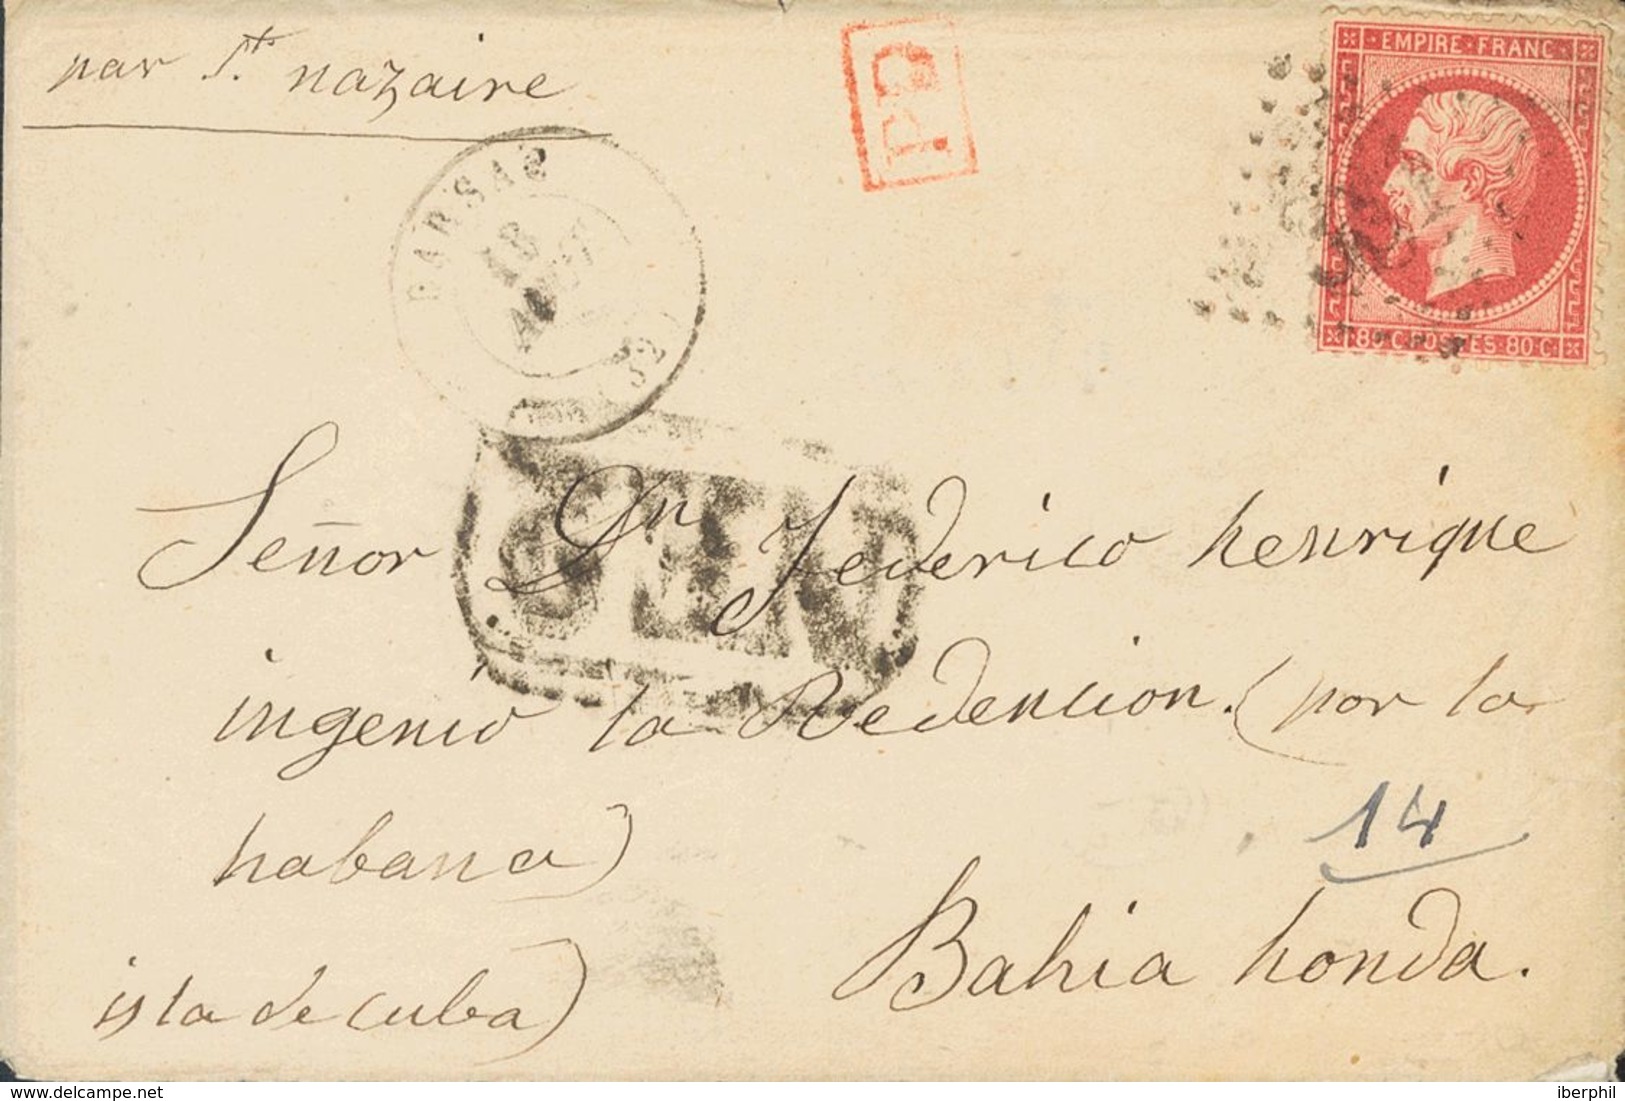 par St. nazaire
PD
EMPIRE FRANC
80 C POSTES 80 C
BARSAC
18
AOUT
(32)
Señor Dn Federico henrique
ingenio la Redencion. (por la
habana)
14
Bahia honda.
isla de cuba)
delcampe.net
iberphil